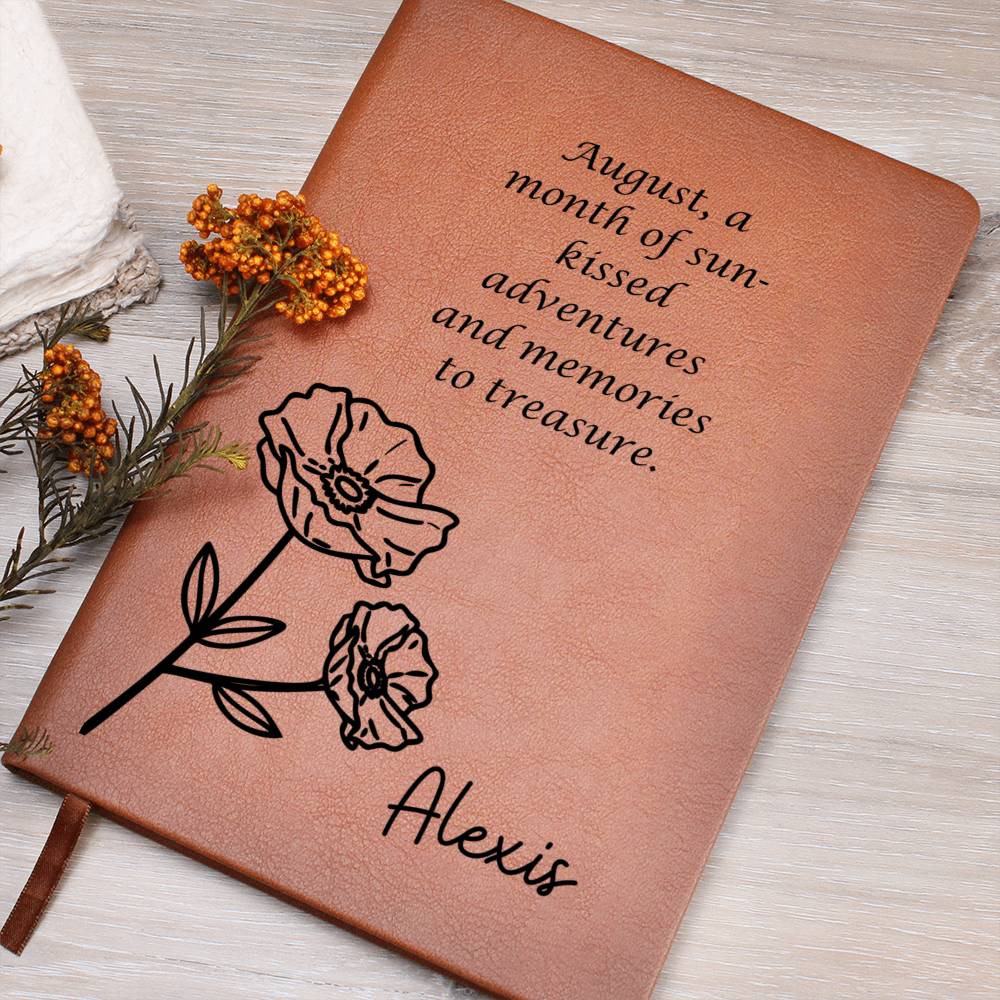 August, a
month of sun-
kissed
adventures
and memories
to treasure.
Alexis